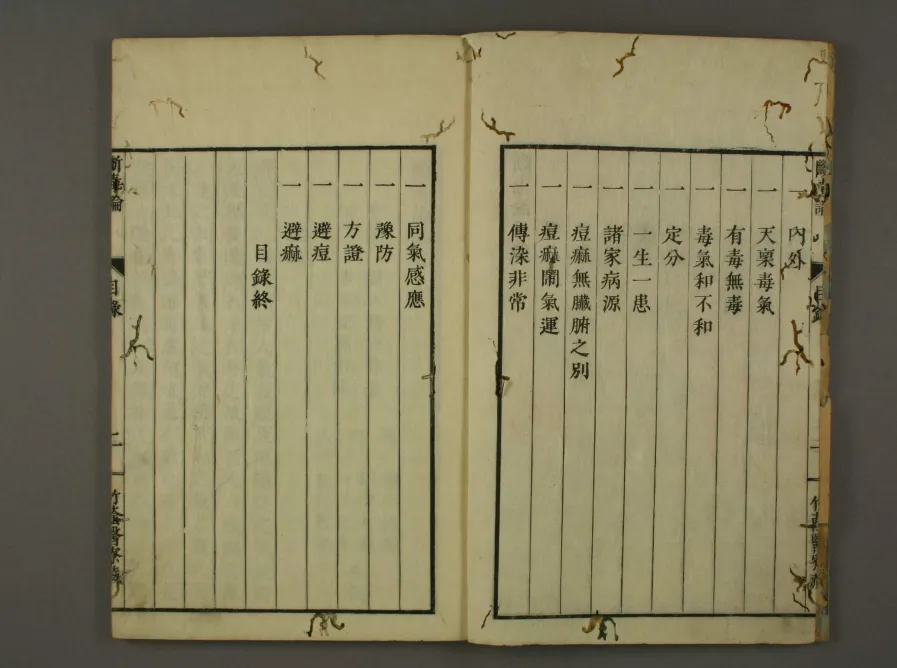 一 內外
一 天稟毒氣
一 有毒無毒
一 毒氣和不和
一 定分
一 一生一患
一 諸家病源
一 痘痲無臟腑之別
一 痘痲關氣運
一 傳染非常
一 同氣感應
一 豫防
一 方證
一 避痘
一 避痲
目錄終
斷毒論
目錄
二